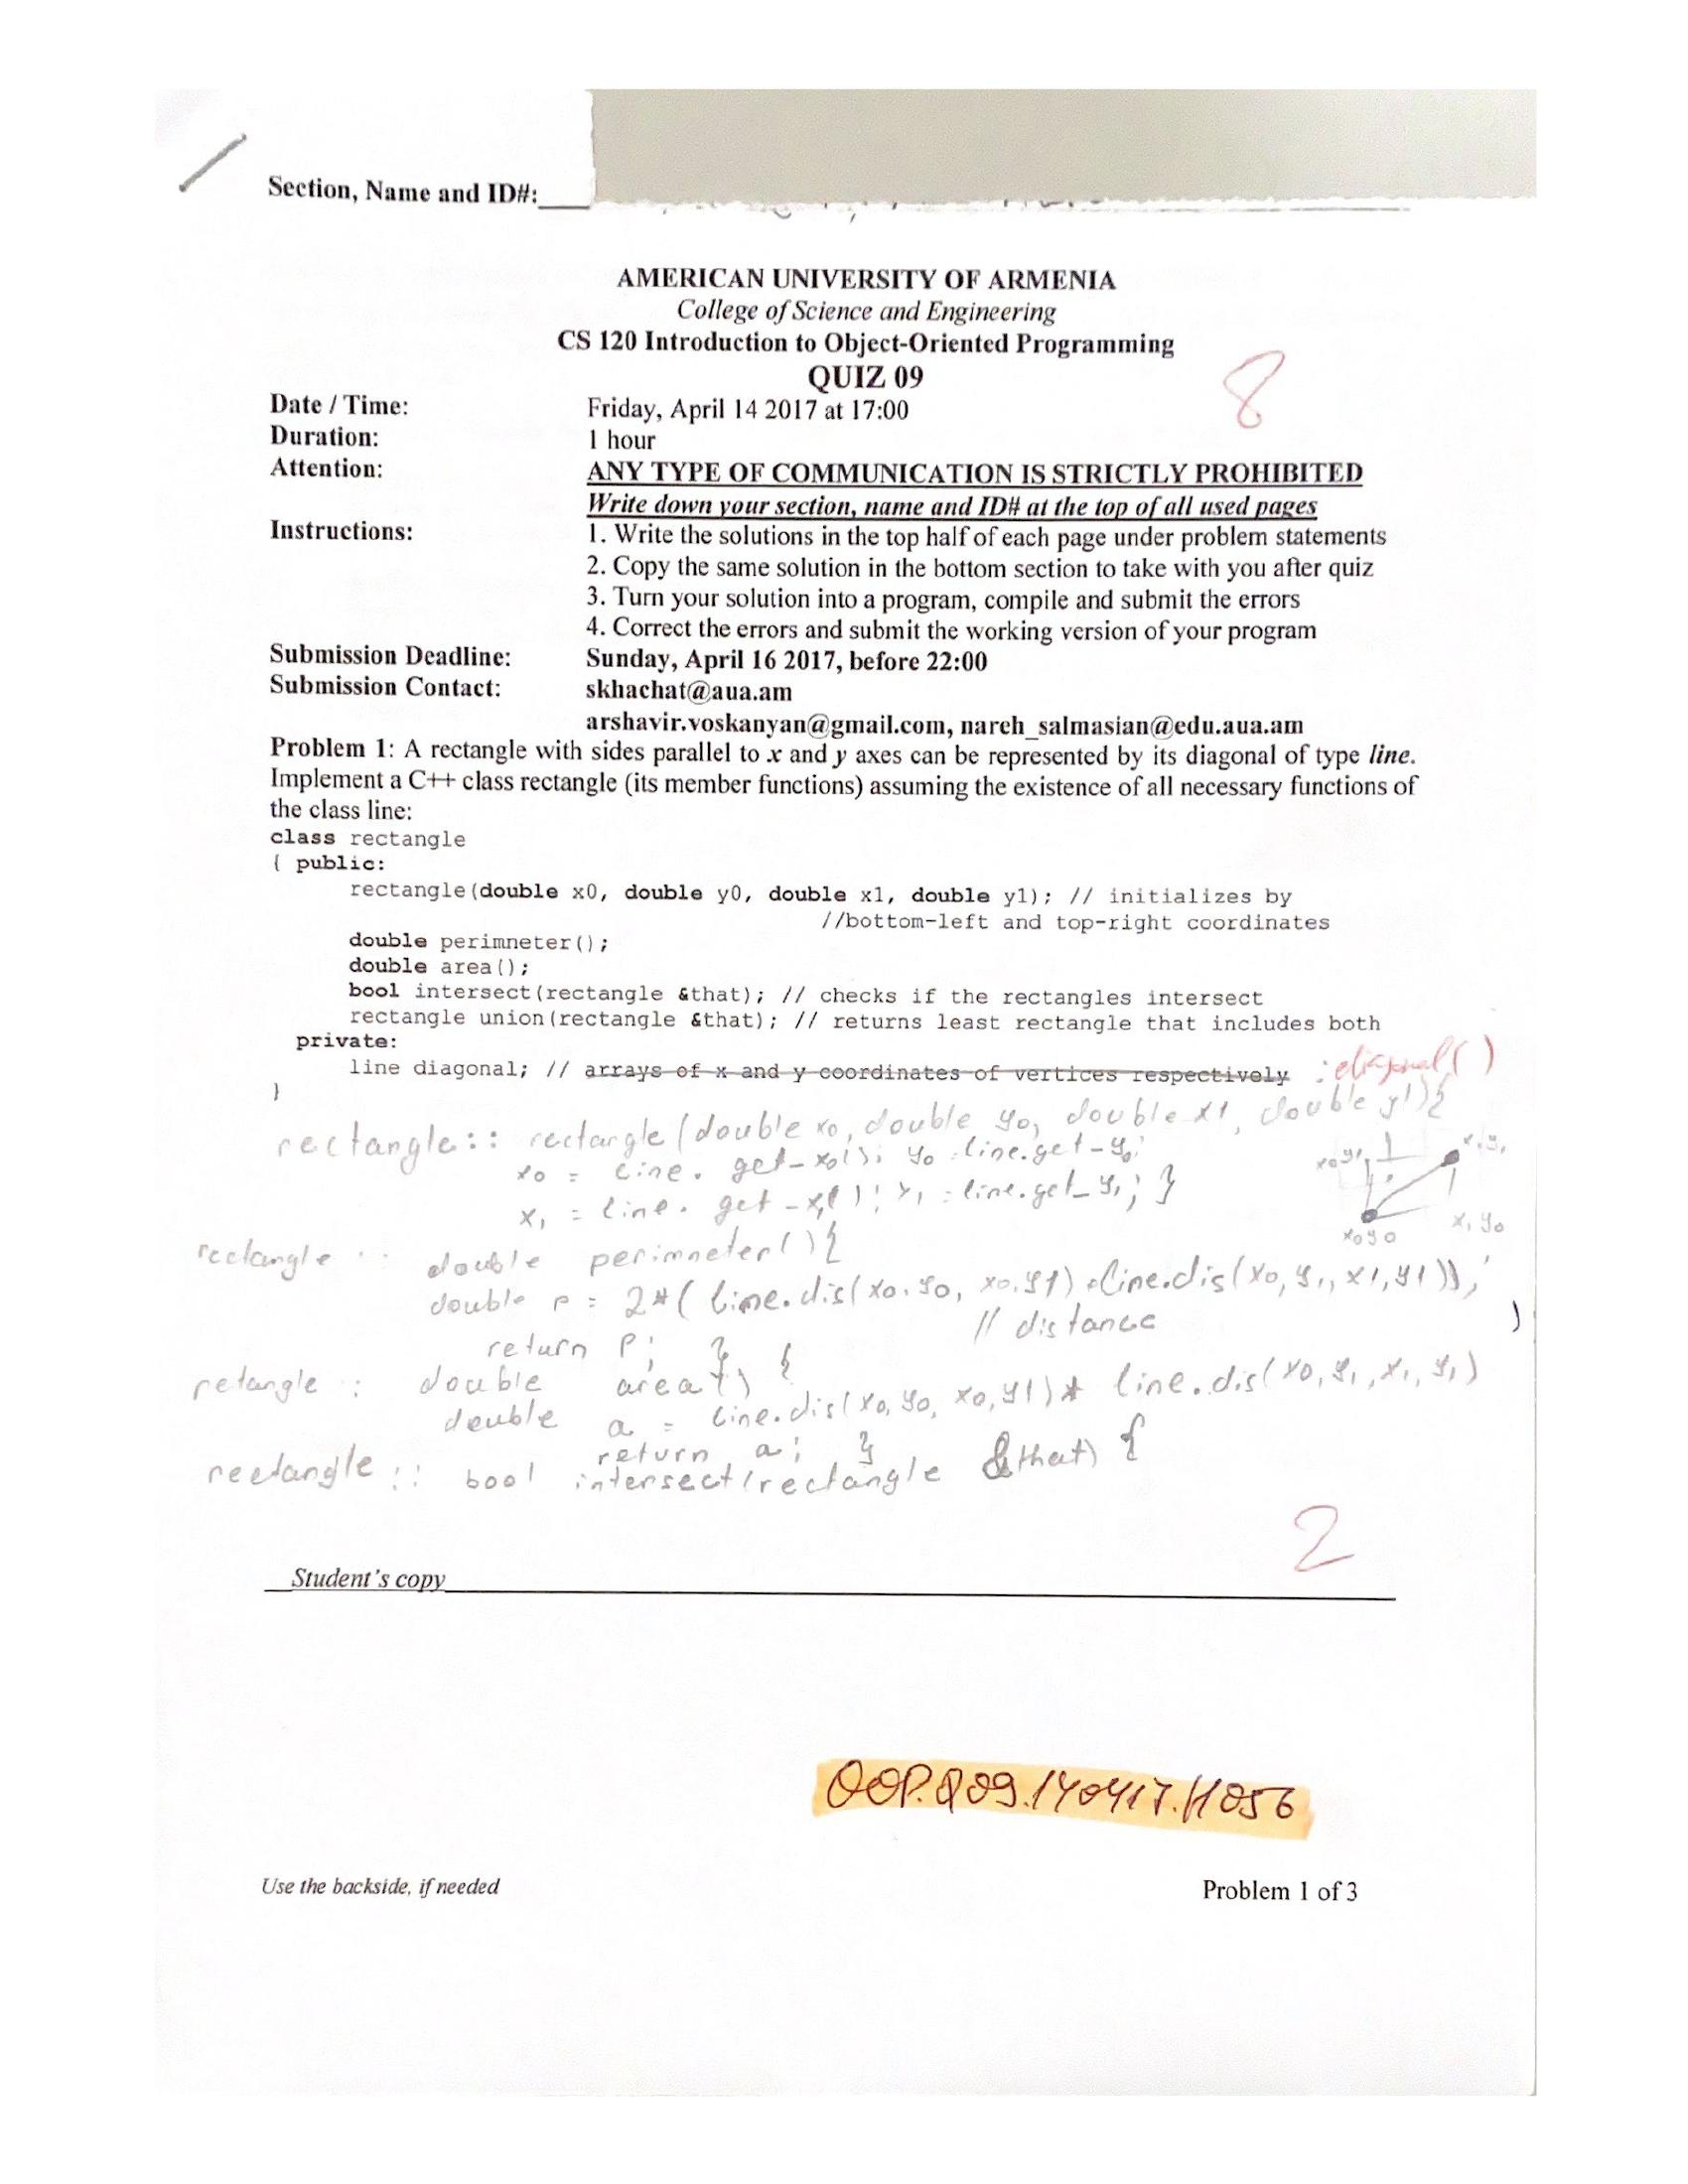 Section, Name and ID#:
AMERICAN UNIVERSITY OF ARMENIA
College of Science and Engineering
CS 120 Introduction to Object-Oriented Programming
QUIZ 09
8
Date / Time: Friday, April 14 2017 at 17:00
Duration: 1 hour
Attention: ANY TYPE OF COMMUNICATION IS STRICTLY PROHIBITED
Write down your section, name and ID# at the top of all used pages
Instructions: 1. Write the solutions in the top half of each page under problem statements
2. Copy the same solution in the bottom section to take with you after quiz
3. Turn your solution into a program, compile and submit the errors
4. Correct the errors and submit the working version of your program
Submission Deadline: Sunday, April 16 2017, before 22:00
Submission Contact: skhachat@aua.am
arshavir.voskanyan@gmail.com, nareh_salmasian@edu.aua.am
Problem 1: A rectangle with sides parallel to x and y axes can be represented by its diagonal of type line.
Implement a C++ class rectangle (its member functions) assuming the existence of all necessary functions of
the class line:
class rectangle
{ public:
rectangle(double x0, double y0, double x1, double y1); // initializes by
//bottom-left and top-right coordinates
double perimneter();
double area();
bool intersect(rectangle &that); // checks if the rectangles intersect
rectangle union(rectangle &that); // returns least rectangle that includes both
private:
line diagonal; // arrays of x and y coordinates of vertices respectively : diagonal( )
}
rectangle:: rectargle(double x0, double y0, double x1, double y1){
x0 = line. get-x0(); y0 = line.get-y0;
x1 = line. get-x1(); y1 = line.get_y1; }
x0y1 x1y1
x0y0 x1y0
rectangle :: double perimneter(){
double p = 2*( line.dis(x0,y0, x0,y1) + line.dis(x0,y1,x1,y1));
// distance
return p; }
retangle : double area() {
double a = line.dis(x0,y0, x0,y1)* line.dis(x0,y1,x1,y1)
return a; }
rectangle :: bool intersect(rectangle &that) {
2
Student's copy
OOP.Q09.140417.H056
Use the backside, if needed
Problem 1 of 3